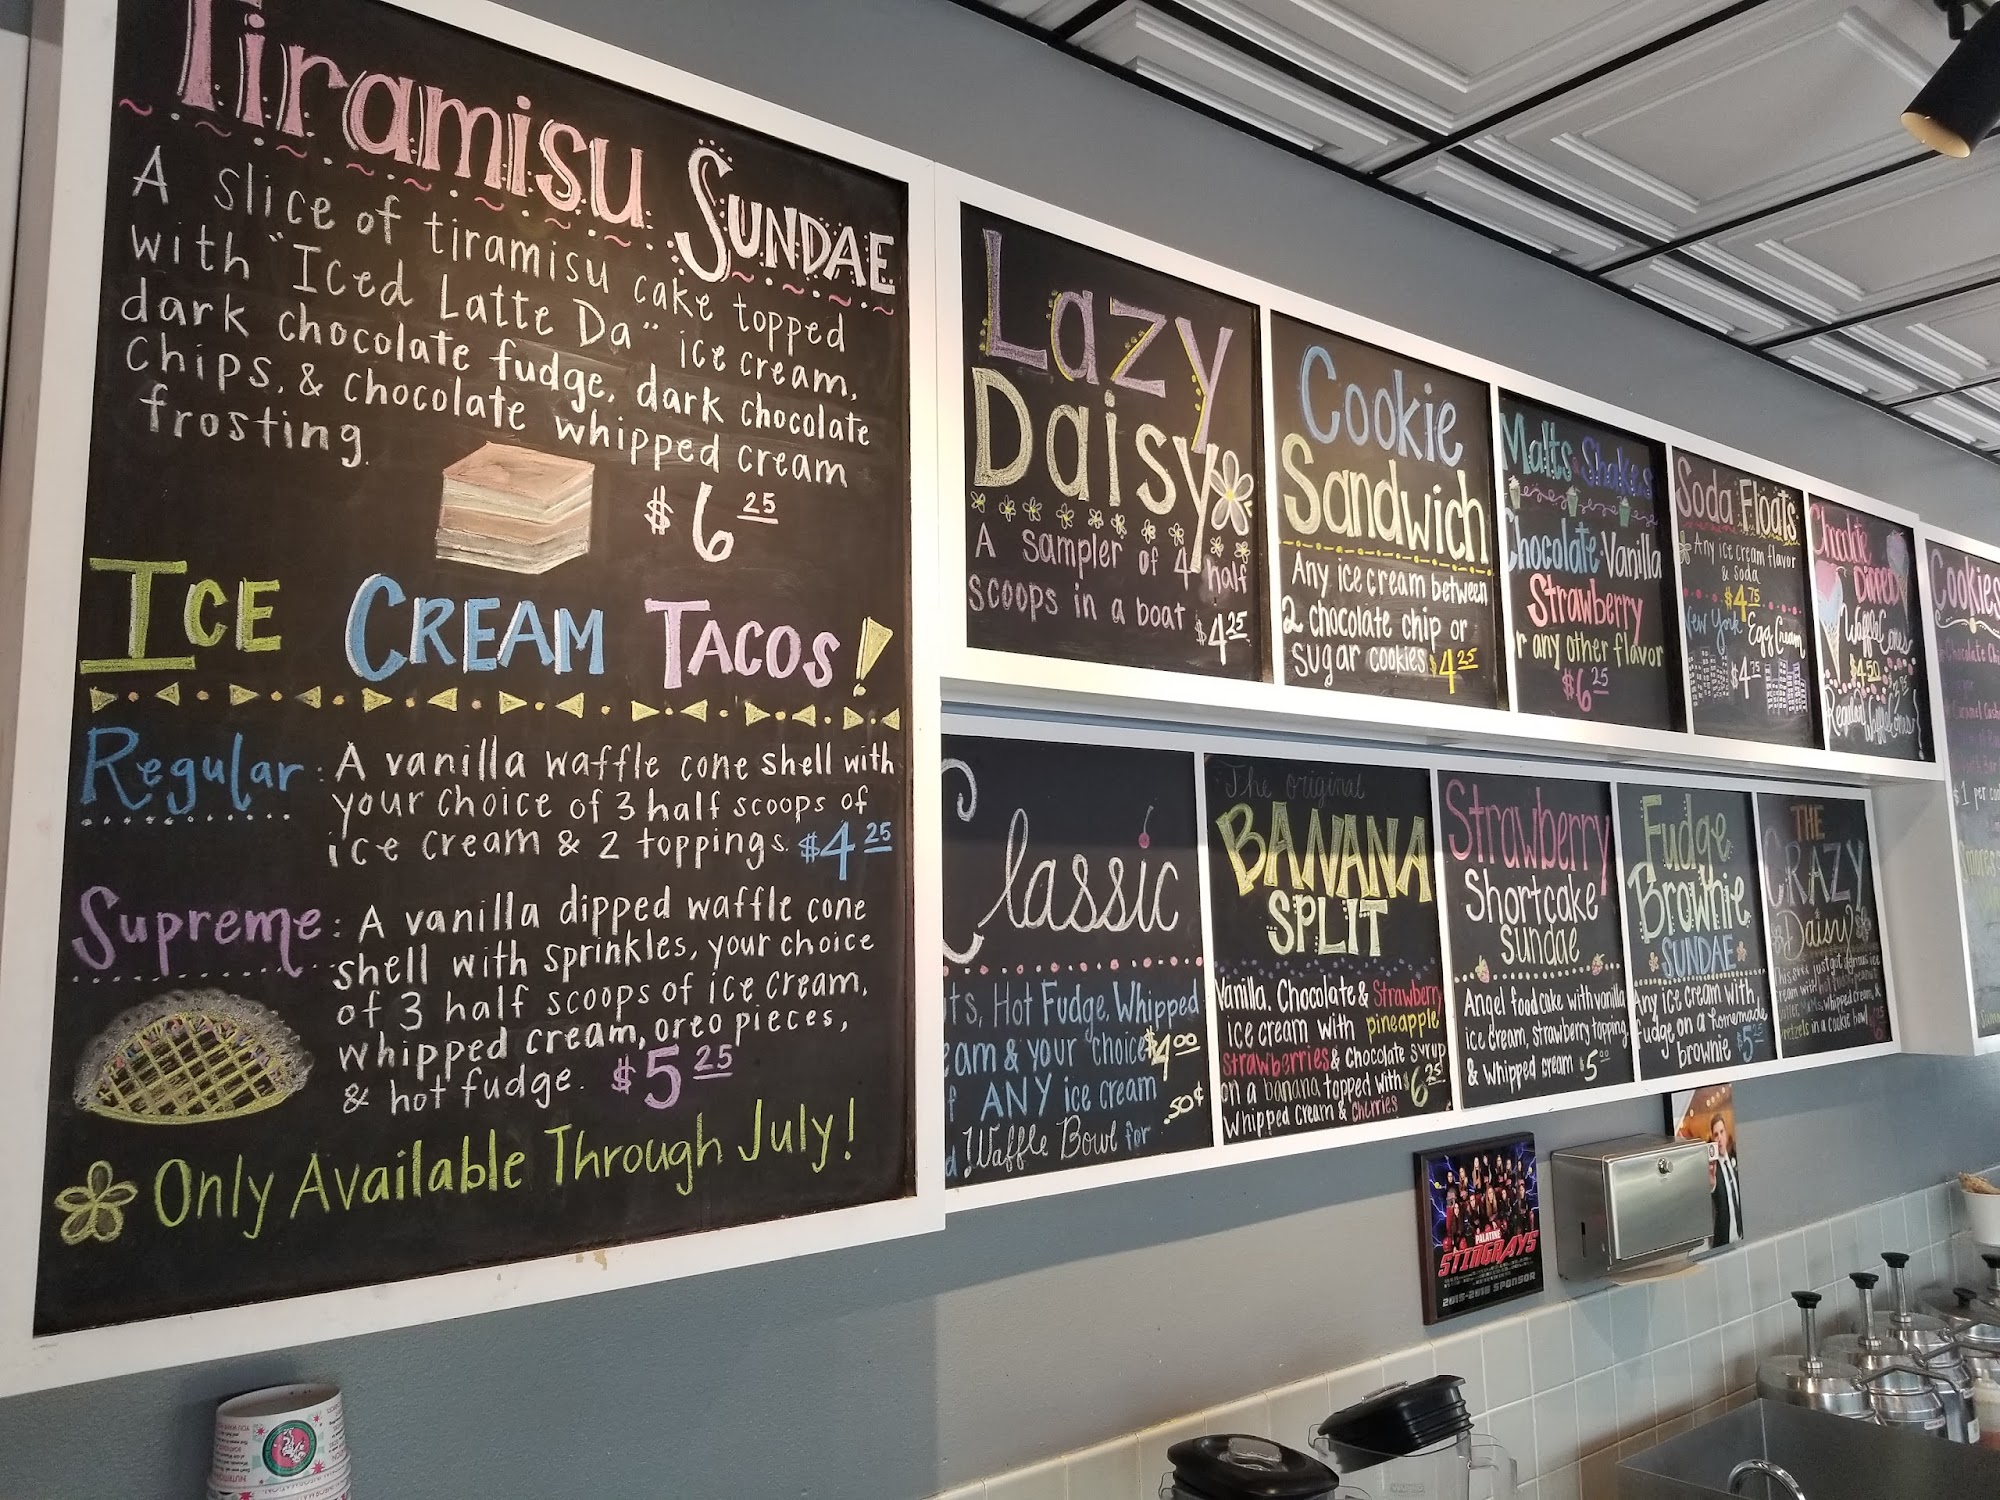 Tiramisu Sundae
A slice of tiramisu cake topped
with "Iced Latte Da" ice cream,
dark chocolate fudge, dark chocolate
chips, & chocolate whipped cream
frosting.
$6 25
ICE CREAM TACOS!
Regular: A vanilla waffle cone shell with
your choice of 3 half scoops of
ice cream & 2 toppings. $4 25
Supreme: A vanilla dipped waffle cone
shell with sprinkles, your choice
of 3 half scoops of ice cream,
whipped cream, oreo pieces,
& hot fudge. $5 25
Only Available Through July!
Lazy
Daisy
A sampler of 4 half
scoops in a boat $4 25
Cookie
Sandwich
Any ice cream between
2 chocolate chip or
sugar cookies $4 25
Malts Shakes
Chocolate Vanilla
Strawberry
or any other flavor
$6 25
Soda Floats
Any ice cream flavor
& soda
$4 75
New York Egg Cream
$4 75
Chocolate
Dipped
Waffle Cones
$4 50
Regular Waffle Cones
Cookies
$1 per
Classic
Hot Fudge, Whipped
& your choice $4 00
ANY ice cream
Waffle Bowl for .50¢
The original
BANANA
SPLIT
Vanilla, Chocolate & Strawberry
ice cream with pineapple
strawberries & chocolate syrup
on a banana topped with $6 25
whipped cream & cherries
Strawberry
Shortcake
Sundae
Angel food cake with vanilla
ice cream, strawberry topping,
& whipped cream $5 00
Fudge
Brownie
SUNDAE
Any ice cream with
fudge on a homemade
brownie $5 25
THE
CRAZY
Daisy
whipped cream, &
pretzels in a cookie bowl
PALATINE
STINGRAYS
2015-2016 SPONSOR